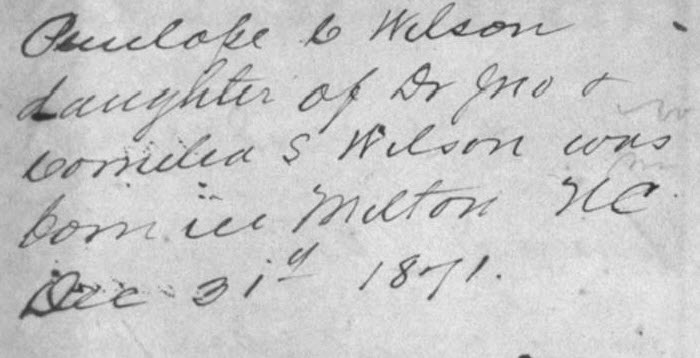 Penelope C Wilson
daughter of Dr Jno &
Cornelia S Wilson was
born in Milton NC
Dec 31st 1871.